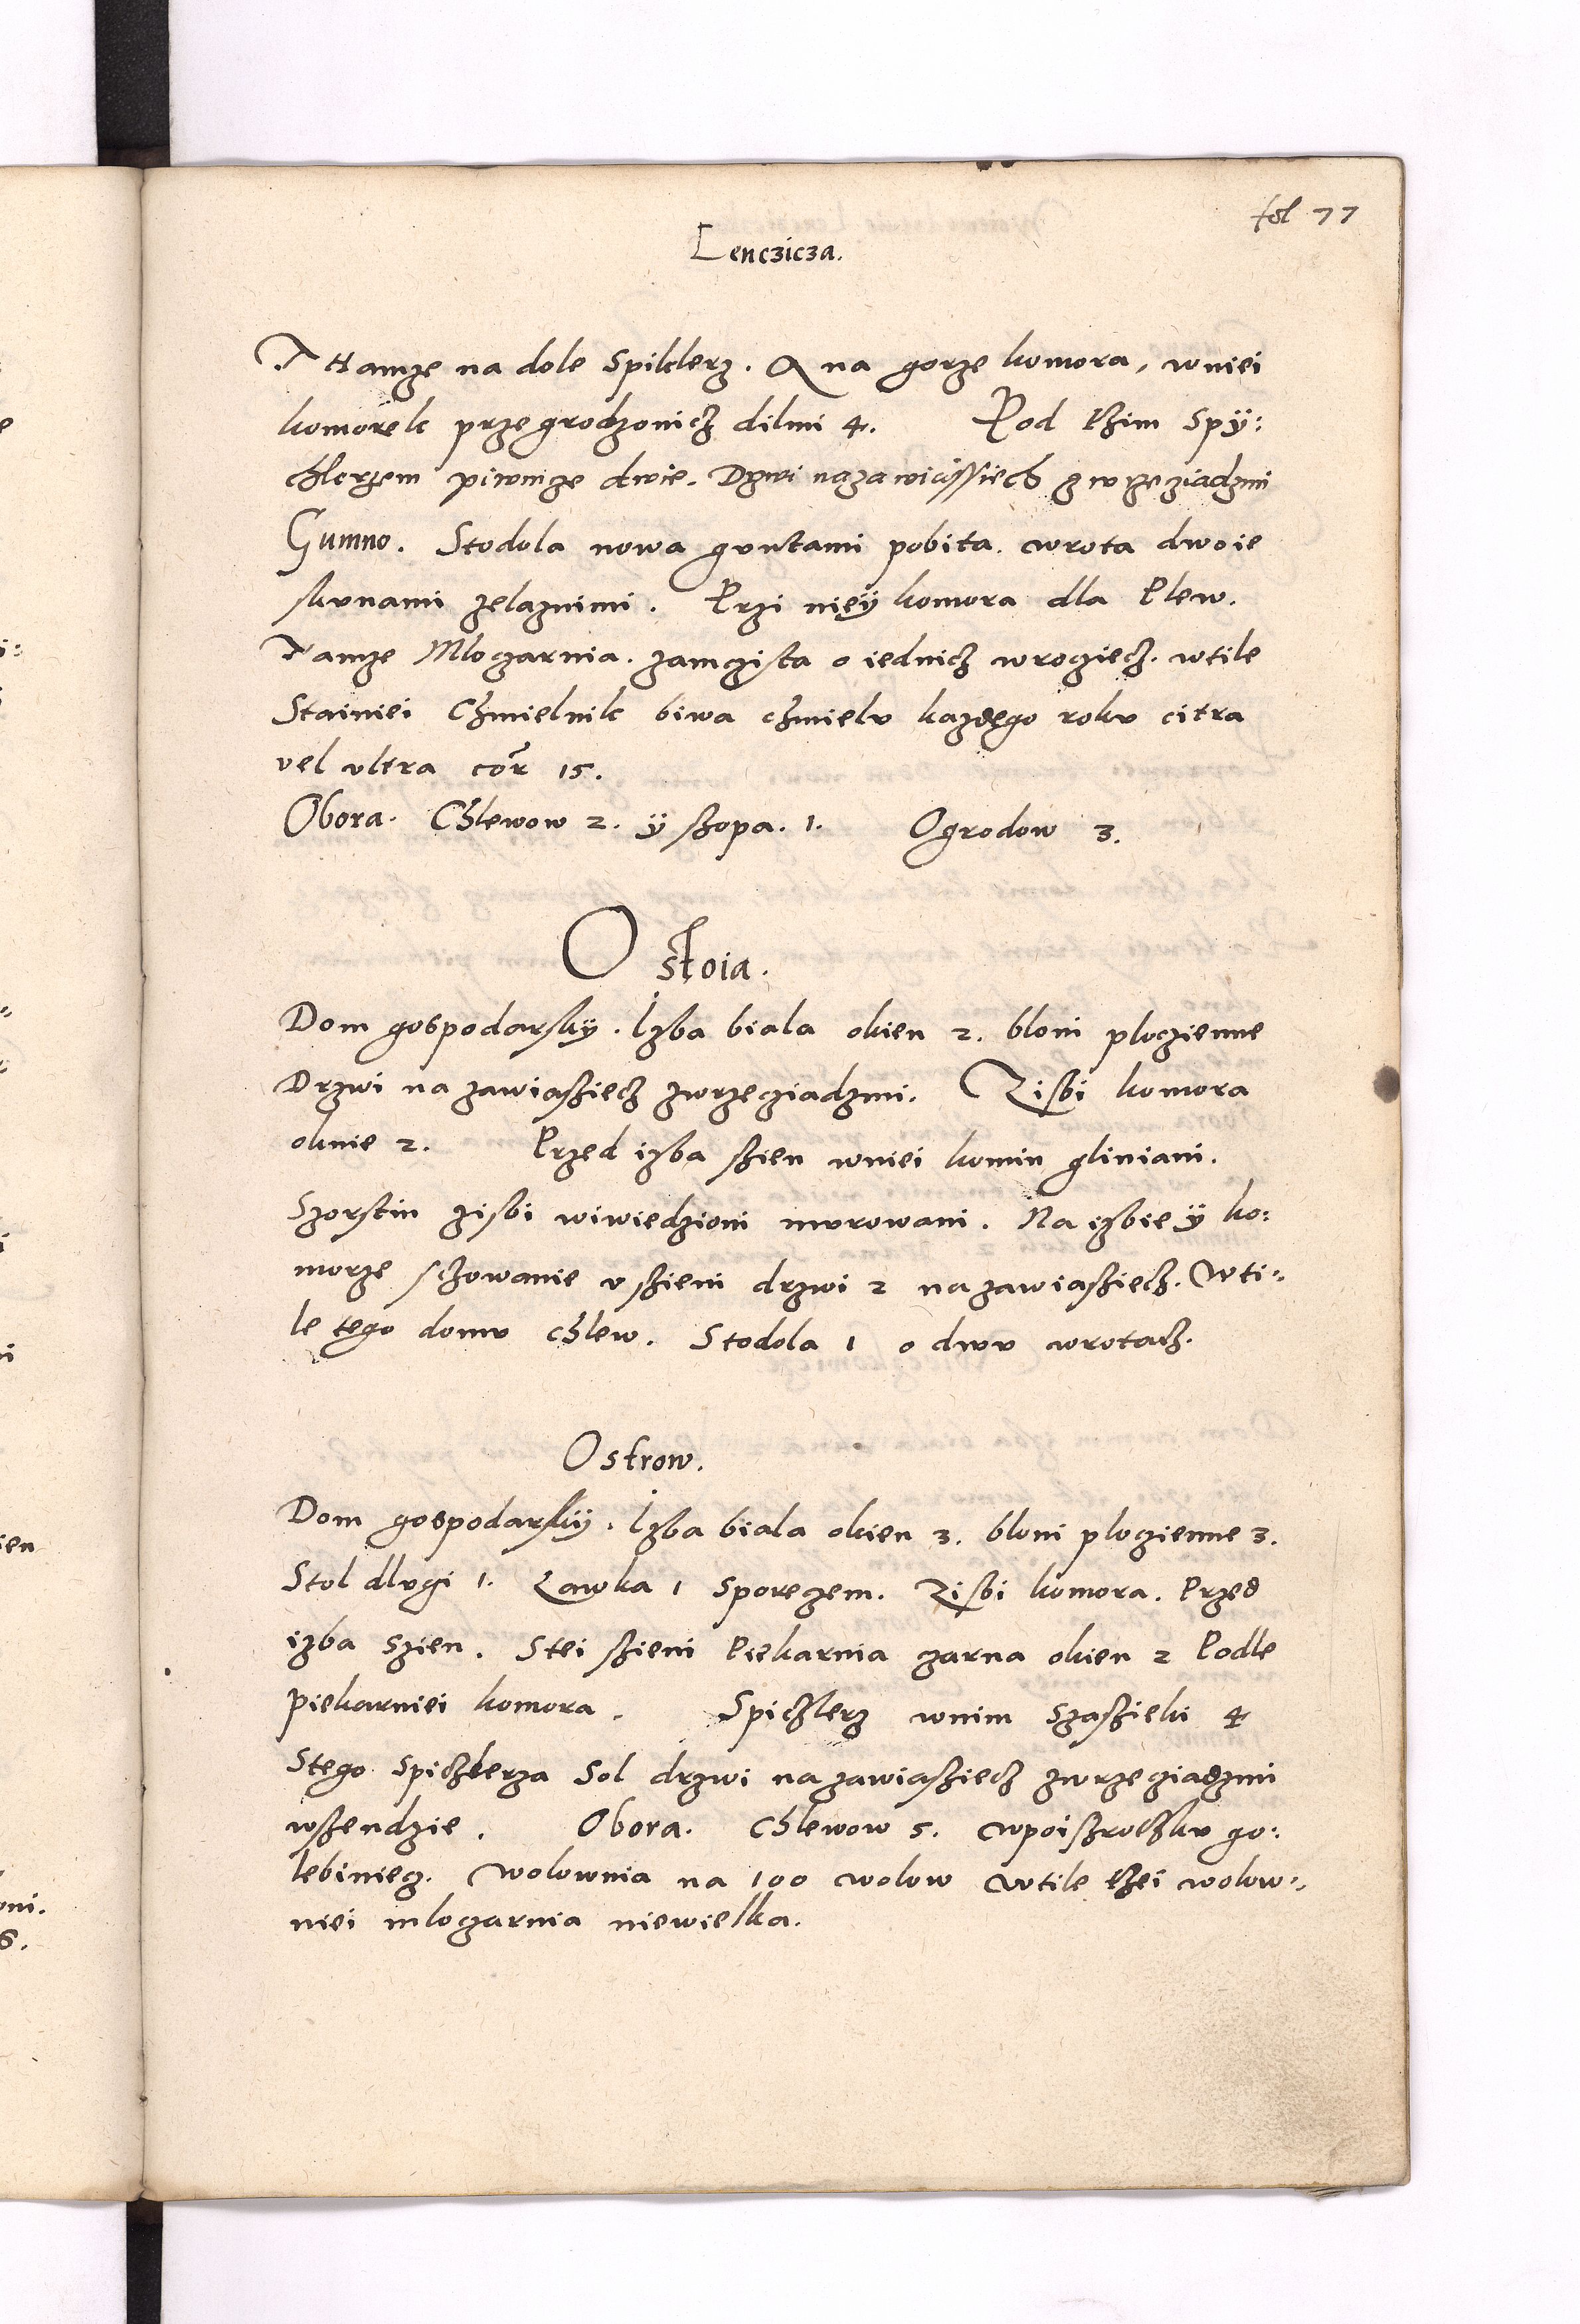 fol 77
Lenczicza.
THamze na dole Spiklerz. A na gorze komora, wniei
komorek przegrodzonich dilmi 4. Pod thim Spÿ:
chlerzem piwnize dwie. Dzwi nazawiassiech zwrzeziadzmi
Gumno. Stodola nowa guntami pobita. wrota dwoie
skunami zelaznimi. Przi nieÿ komora dla Plew.
Tamze Mloczarnia. zamczista o iednich wrociech. wtile
Stainiei Chmielnik biwa chmielu kazdego roku citra
vel vltra cor 15.
Obora. Chlewow 2. ÿ szopa. 1. Ogrodow 3.
Ostoia.
Dom gospodarskÿ. Izba biala okien 2. bloni ploczienne
Drzwi na zawiasziech zwrzecziadzmi. Zisbi komora
oknie 2. Przed izba szien wniei komin gliniani.
Szorstin zisbi wiwiedzioni murowani. Na izbie ÿ ko:
morze schowanie u szieni drzwi 2 na zawiasziech. Wti-
le tego domu chlew. Stodola 1 o dwu wrotach.
Ostrow.
Dom gospodarskÿ. Izba biala okien 3. bloni plozienne 3.
Stol dlugi 1. Lawka 1 sporeczem. Zisbi komora. Przed
izba Szien. Stei szieni Piekarnia czarna okien 2 Podle
piekarniei komora. Spichlerz wnim Szaszieki 4
Stego spichlerza Sol drzwi na zawiasziech zwrzecziadzmi
wszendzie. Obora. Chlewow 5. Wpoiszrodku go:
lebiniecz. Wolownia na 100 wolow Wtile thei wolow-
niei mloczarnia niewielka.